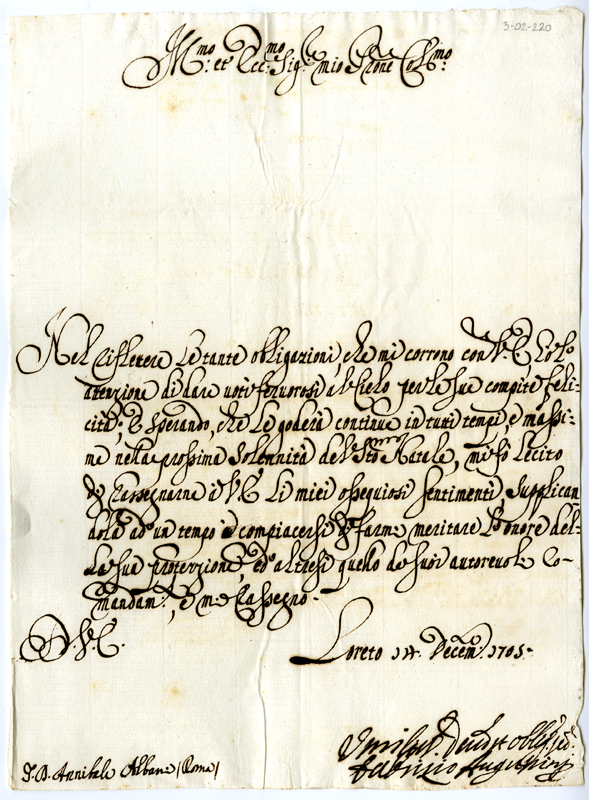 3-02-220
Ill.mo et Ecc.mo Sig.re mio P.rone Col.mo
Nel riflettere le tante obligazioni, che mi corrono con V.E., hò
attenzione di dare voti fervorosi al Cielo per le sue compite feli=
cità; e sperando, che le goderà continue in tutti tempi, e massi=
me nella prossima solennità del S.to Natale, mi fò lecito
di rassegnarne à V.E. li miei ossequiosi sentimenti, supplican
dola ad un tempo à compiacersi di farmi meritare l'onore del=
la sua protezzione, ed altresi quello de suoi autorevoli co=
mandam.ti, e mi rassegno.
D. V.E.
Loreto 14. Decem. 1705.
Umiliss. Devot. oblig. ser.
Fabrizio
S. D. Annibale Albani (Roma)